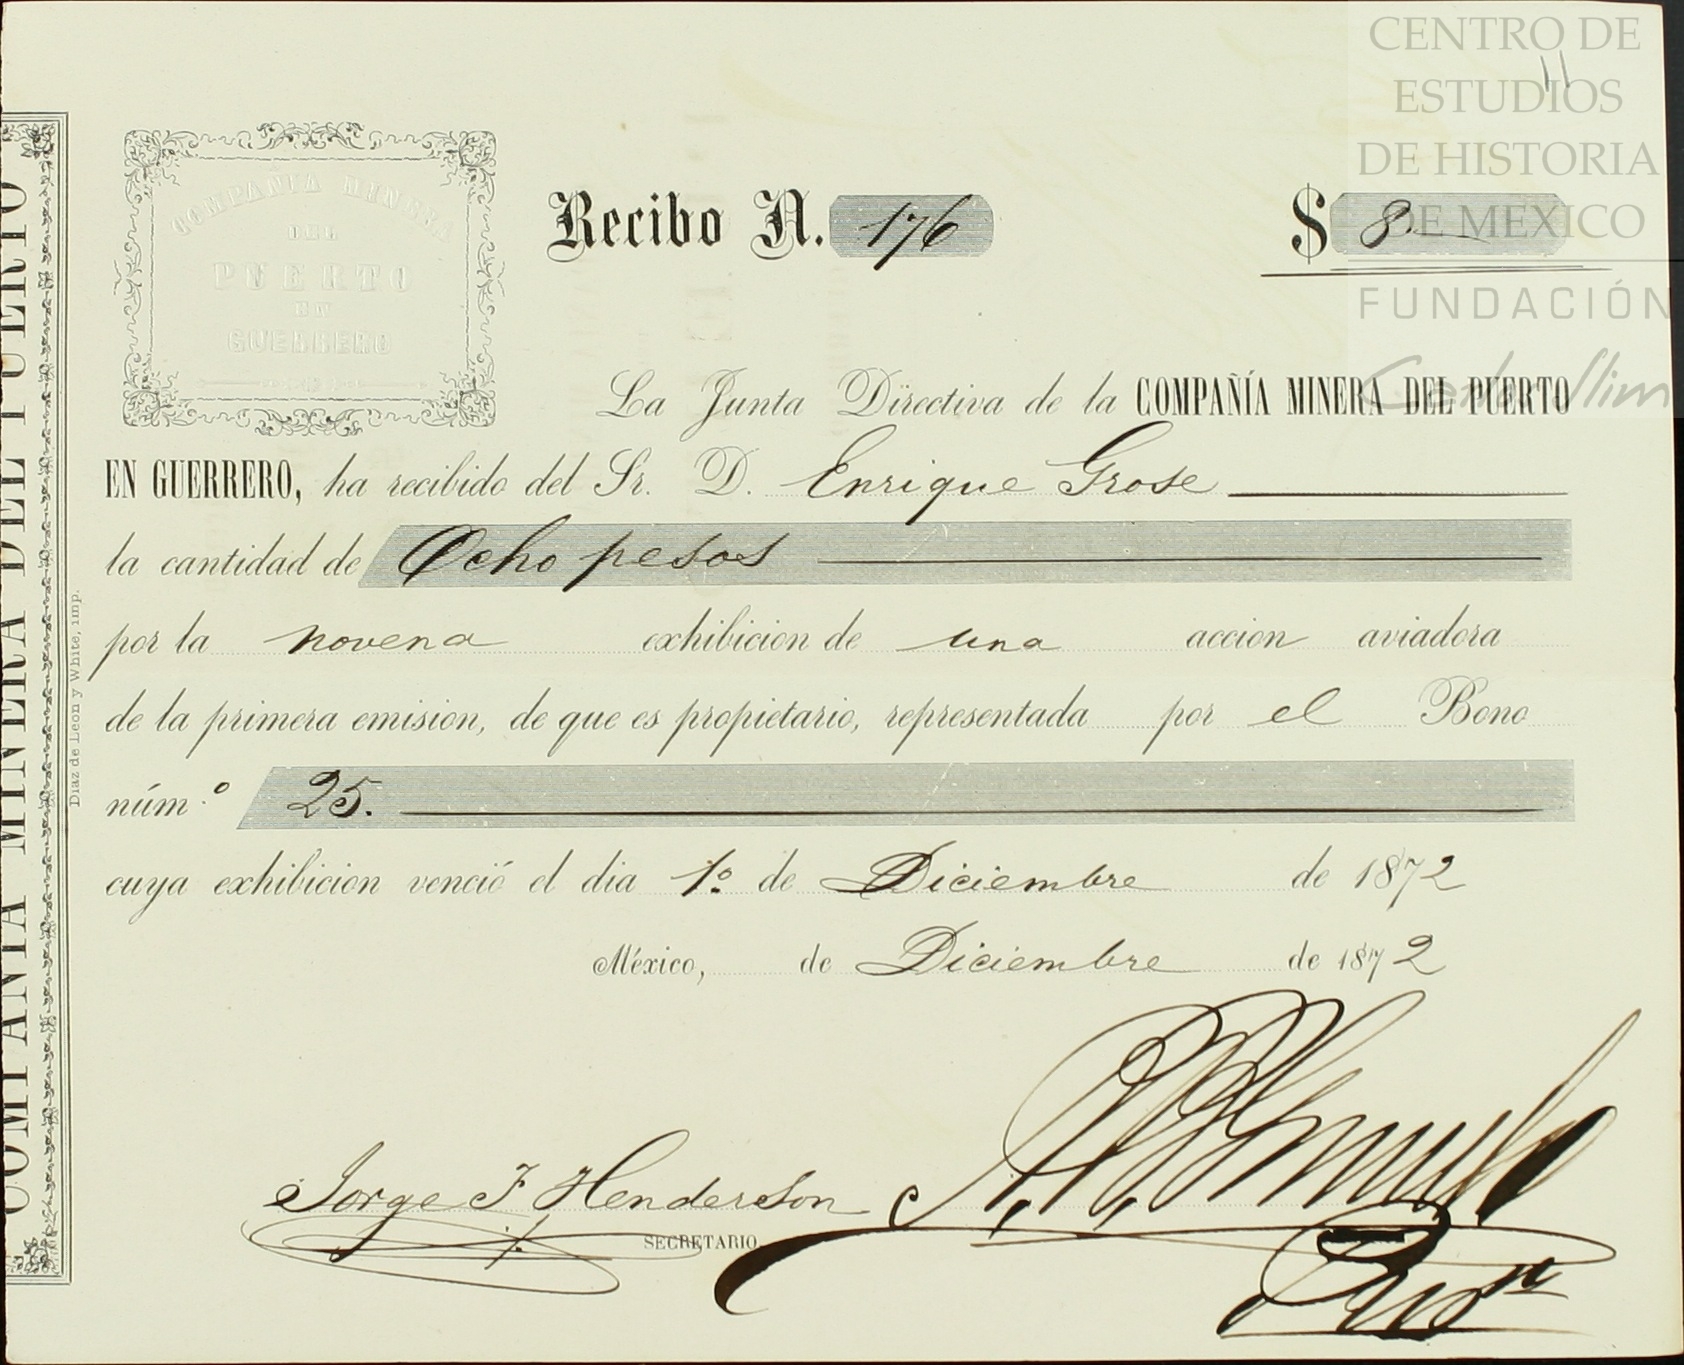 CENTRO DE
ESTUDIOS
DE HISTORIA
DE MEXICO
FUNDACIÓN
Carlos Slim
11
COMPAÑIA MINERA
DEL
PUERTO
EN
GUERRERO
Recibo N. 176 $ 8.
La Junta Directiva de la COMPAÑÍA MINERA DEL PUERTO
EN GUERRERO, ha recibido del Sr. D. Enrique Grose
la cantidad de Ocho pesos
por la novena exhibicion de una accion aviadora
de la primera emision, de que es propietario, representada por el Bono
núm.º 25.
cuya exhibicion venció el dia 1º de Diciembre de 1872
México, de Diciembre de 1872
Jorge F Henderson
SECRETARIO
COMPAÑIA MINERA DEL PUERTO
Diaz de Leon y White, imp.